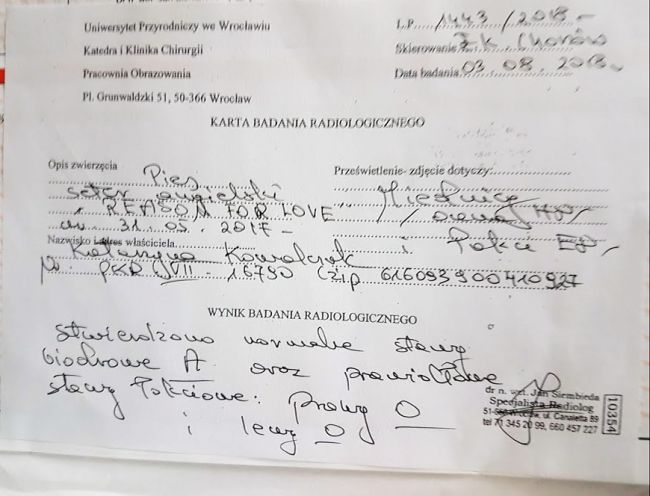 Uniwersytet Przyrodniczy we Wrocławiu
Katedra i Klinika Chirurgii
Pracownia Obrazowania
Pl. Grunwaldzki 51, 50-366 Wrocław
L.P. 1443/2018
Skierowanie ZK Chorzów
Data badania 03 08. 2018
KARTA BADANIA RADIOLOGICZNEGO
Opis zwierzęcia Pies
seter angielski
"REASON FOR LOVE"
ur. 31. 05. 2017
Prześwietlenie- zdjęcie dotyczy:
Miednicy
/ ocena HD/
i Łokci ED
Nazwisko i adres właściciela
Katarzyna Kowalczyk
Nr. PKR VII - 16790 Czip 616093900410927
WYNIK BADANIA RADIOLOGICZNEGO
stwierdzono normalne stawy
biodrowe A oraz prawidłowe
stawy łokciowe: prawy 0
i lewy 0
dr n. wet. Jan Siembieda
Specjalista Radiolog
ul. Canaletta 89
tel 71 345 20 99, 660 457 227
10354